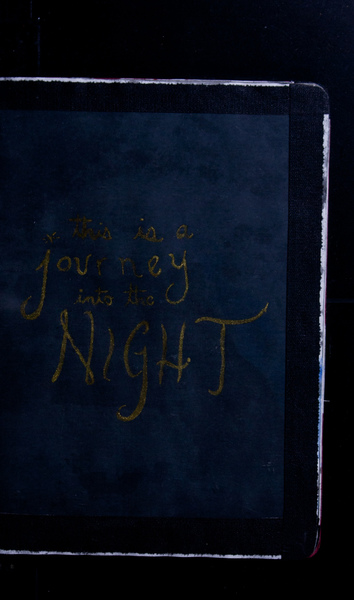 this is a
journey
into the
NIGHT